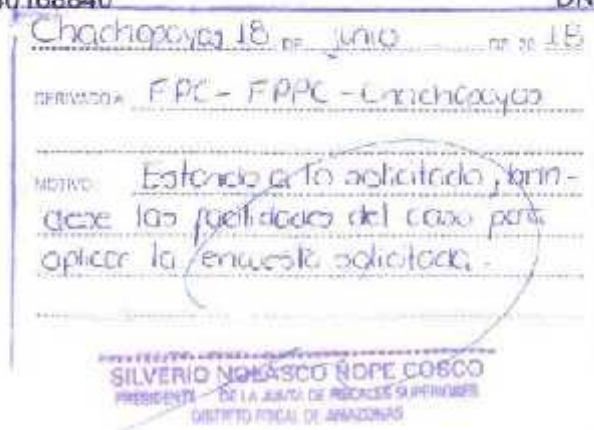 Chachapoyas 18 DE junio DE 20 18
DERIVADO A FPC - FPPC - Chachapoyas
MOTIVO: Estando a lo solicitado, brin-
dese las facilidades del caso para
aplicar la encuesta solicitada.
SILVERIO NOLASCO ÑOPE COSCO
PRESIDENTE DE LA JUNTA DE FISCALES SUPERIORES
DISTRITO FISCAL DE AMAZONAS